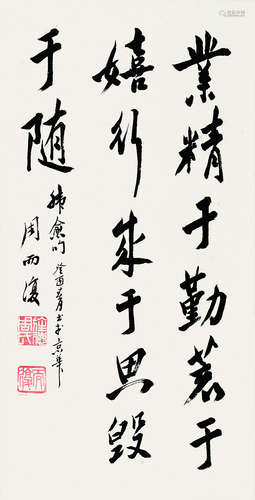 業精于勤荒于
嬉行成于思毁
于随
韩愈句 癸酉 月书于京华
周而复